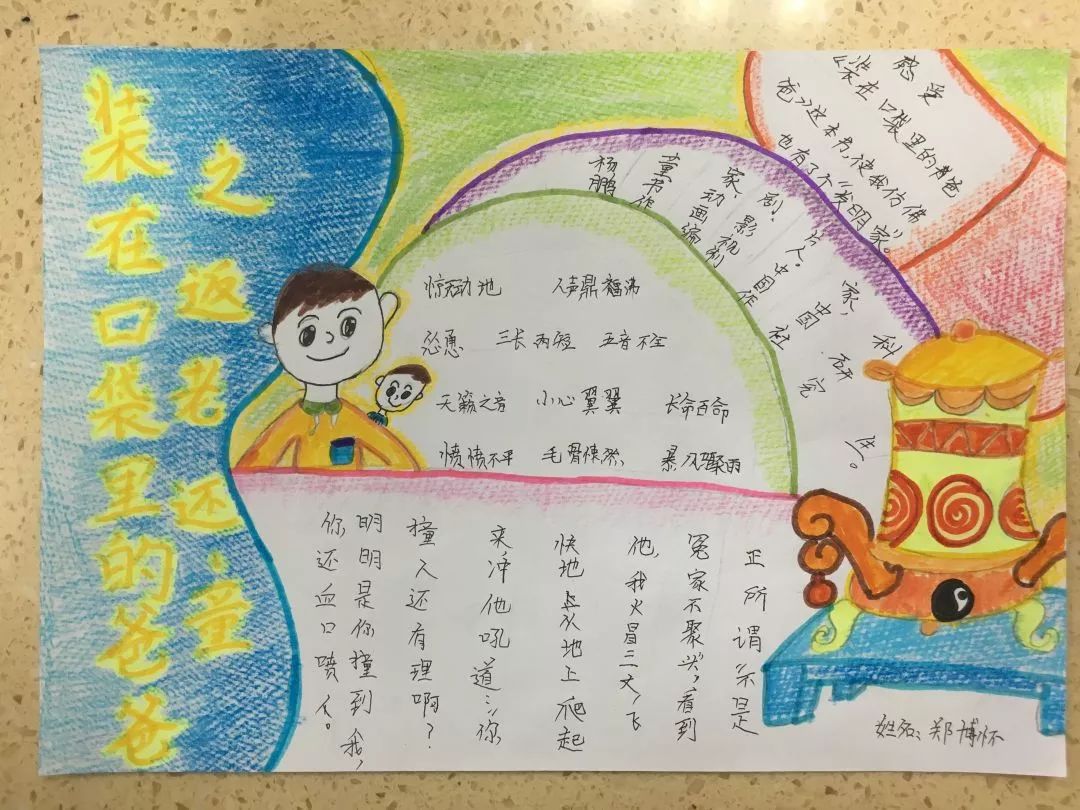 装在口袋里的爸爸
之返老还童
感受
《装在口袋里的爸
爸》这本书,使我仿佛
也有了个“发明家”。
杨鹏
童书作
家、动画编
剧、影视制
片人。中国作
家、中国社
科·研究
生。
惊天动地 人声鼎沸
怂恿 三长两短 五音不全
天籁之音 小心翼翼 长命百命
愤愤不平 毛骨悚然 暴风骤雨
正所谓“不是
冤家不聚头”,看到
他,我火冒三丈,飞
快地从地上爬起
来,冲他吼道:“你
撞人还有理啊?
明明是你撞到我,
你还血口喷人。
姓名:郑博怀